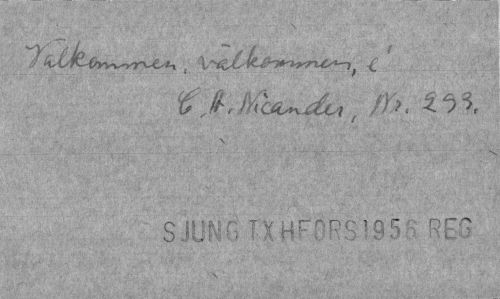 Välkommen, välkommen, i
C. A. Nicander, Nr. 293.
SJUNG TX HFORS 1956 REG